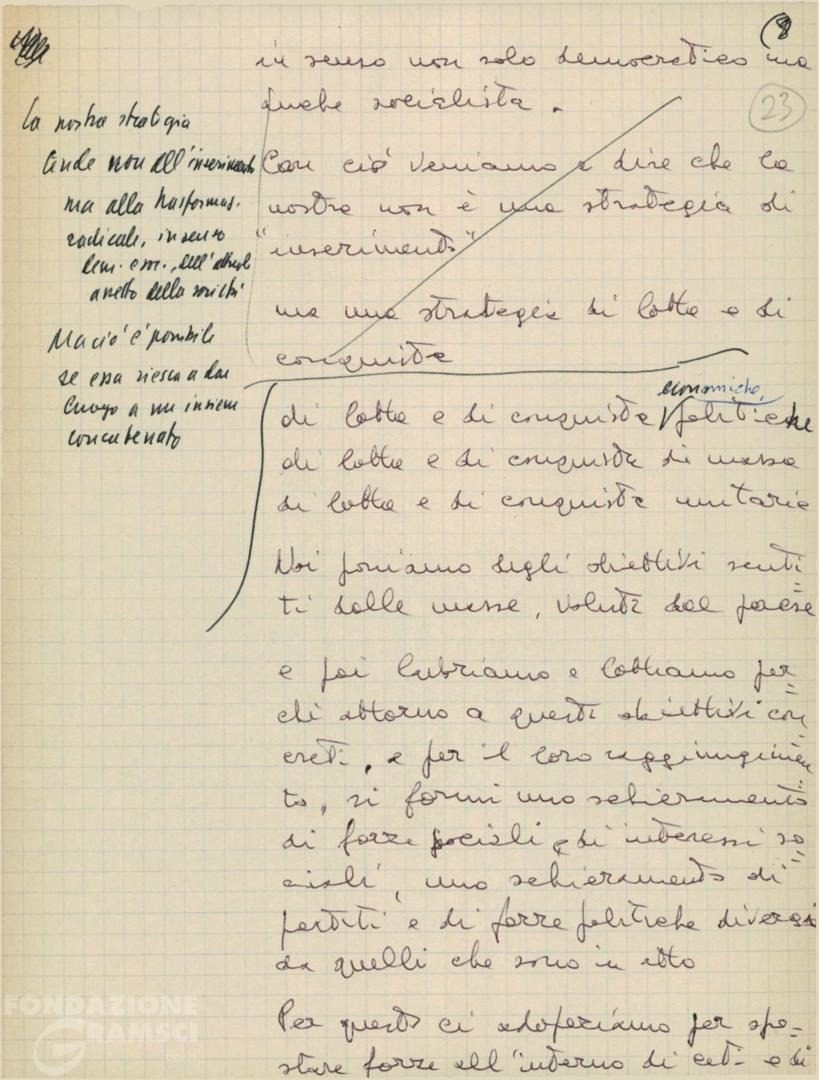 8
23
in senso non solo democratico ma
anche socialista.
Con ciò veniamo a dire che la
nostra non è una strategia di
"inserimento"
ma una strategia di lotta e di
conquista
La nostra strategia
tende non all'inserimento
ma alla trasformaz.
radicale, in senso
dem. e soc., dell'attuale
assetto della società
Ma ciò è possibile
se essa riesca a dar
luogo a un insieme
concatenato
economiche,
di lotta e di conquista politiche
di lotta e di conquista di massa
di lotta e di conquista unitaria
Noi poniamo degli obiettivi senti=
ti dalle masse, voluti dal paese
e poi lavoriamo e lottiamo per=
chè attorno a questi obiettivi con=
creti, e per il loro raggiungimen=
to, si formi uno schieramento
di forze sociali e di interessi so=
ciali, uno schieramento di
partiti e di forze politiche diversi
da quelli che sono in atto
Per questo ci adoperiamo per spo=
stare forze all'interno di ceti e di
FONDAZIONE
GRAMSCI